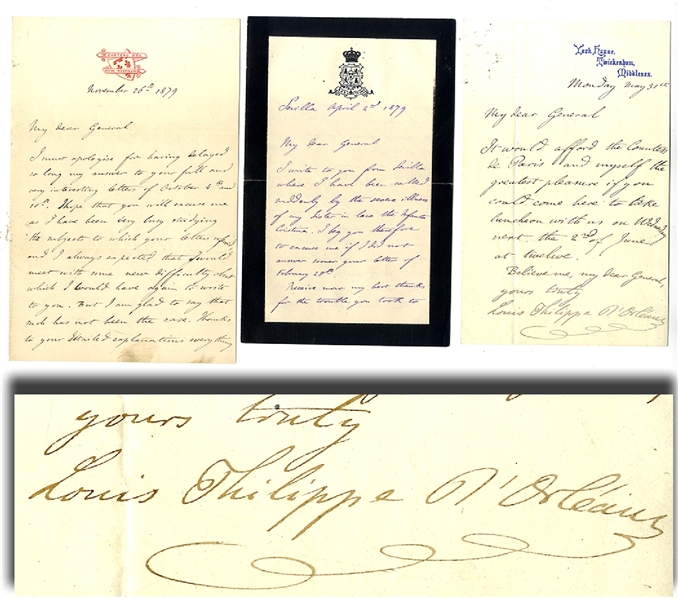 November 26th 1879
My dear General
I must apologise for having delayed
so long my answer to your full and
very interesting letters of October 4th and
10th. I hope that you will excuse me
as I have been very busy studying
the subjects to which your letters
and I always expected that I would
meet with some new difficulty about
which I would have again to write
to you. But I am glad to say that
such has not been the case. Thanks
to your detailed explanations everything
Sevilla April 2d 1879
My dear General
I write to you from Sevilla
where I have been called
suddenly by the severe illness
of my sister in law the Infanta
Cristina. I beg you therefore
to excuse me if I did not
answer sooner your letter of
February 28th.
Receive now my best thanks
for the trouble you took to
York House,
Twickenham,
Middlesex.
Monday May 31st
My dear General
It would afford the Countess
de Paris and myself the
greatest pleasure if you
could come here to take
luncheon with us on Wednesday
next the 2nd of June
at twelve.
Believe me, my dear General,
yours truly
Louis Philippe d'Orléans
yours truly
Louis Philippe d'Orléans